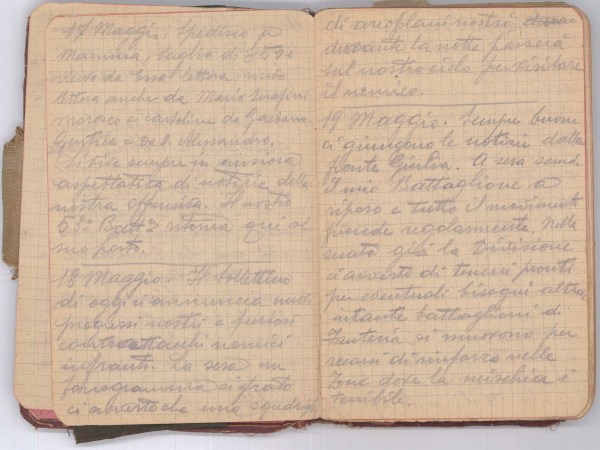 17 Maggio. Spedisco a
Mamma, vaglia di £ 50 e
ricevo da Essa lettera, unito
lettera anche da Mario Serafini
e cartoline da Gaetano
Gentile e De S. Alessandro.
Si vive sempre in ansiosa
aspettativa di notizie della
nostra offensiva. Il nostro
53° Batt. ritorna qui al
suo posto.
18 Maggio - Il bollettino
di oggi ci annuncia nuovi
progressi nostri e furiosi
contrattacchi nemici
infranti. La sera un
fonogramma
ci avverte che una squadriglia
di areoplani nostri,
durante la notte passerà
sul nostro cielo per visitare
il nemico.
19 Maggio. Sempre buone
ci giungono le notizie dalla
fronte Giulia. A sera scende
il mio Battaglione a
riposo e tutto il movimento
procede regolarmente. Nella
serata già la Divisione
ci avverte di tenerci pronti
per eventuali bisogni
intanto battaglioni di
Fanteria si muovono per
recarsi di rinforzo nelle
zone dove la mischia è
terribile.